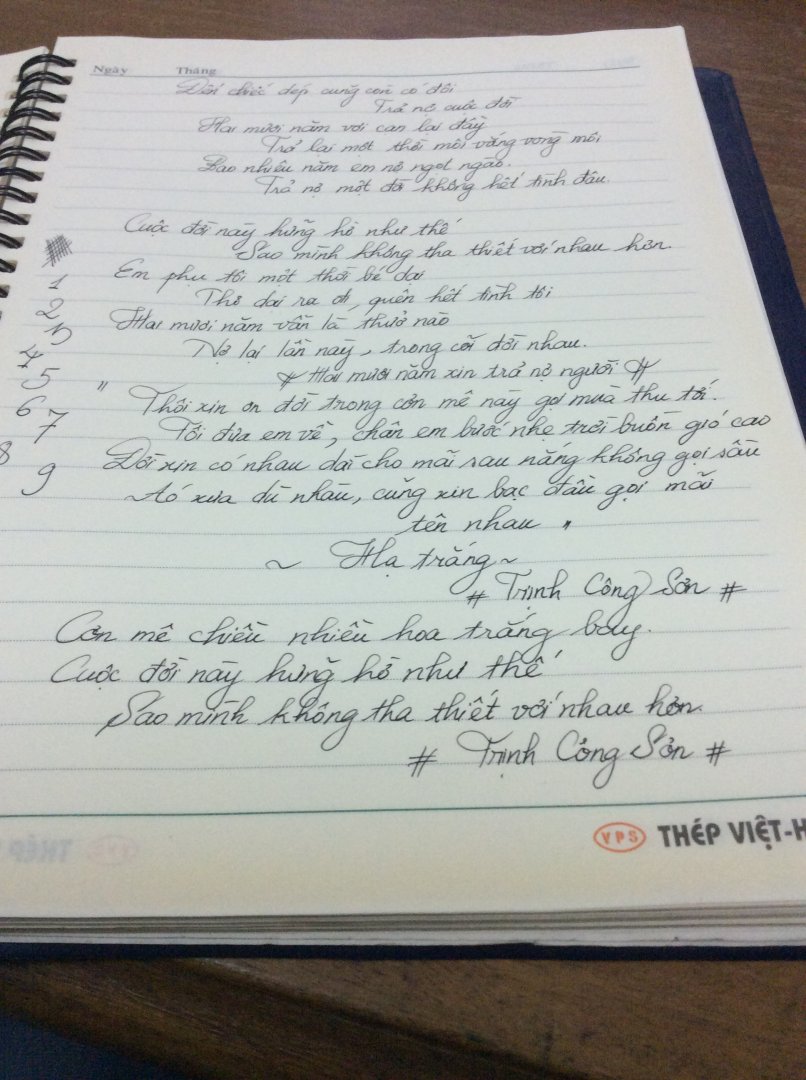 Ngày Tháng
Đến chiếc dép cũng còn có đôi
Trả nợ cuộc đời
Hai mươi năm vơi cạn lại đầy
Trả lại một thời môi vắng vong môi
Bao nhiêu năm em nợ ngọt ngào.
Trả nợ một đời không hết tình đâu.
Cuộc đời này hững hờ như thế
Sao mình không tha thiết với nhau hơn.
1 Em phụ tôi một thời bé dại
2 Thơ dại ra đi, quên hết tình tôi
3 Hai mươi năm vẫn là thuở nào
4 Nợ lại lần này, trong cõi đời nhau.
5 # Hai mươi năm xin trả nợ người #
6 " Thôi xin ơn đời trong cơn mê này gọi mùa thu tới.
7 Tôi đưa em về, chân em bước nhẹ trời buồn gió cao
8 Đời xin có nhau dài cho mãi sau nắng không gọi sầu
9 Áo xưa dù nhàu, cũng xin bạc đầu gọi mãi
tên nhau "
~ Hạ trắng ~
# Trịnh Công Sơn #
Cơn mê chiều nhiều hoa trắng bay.
Cuộc đời này hững hờ như thế
Sao mình không tha thiết với nhau hơn.
# Trịnh Công Sơn #
VPS THÉP VIỆT-H